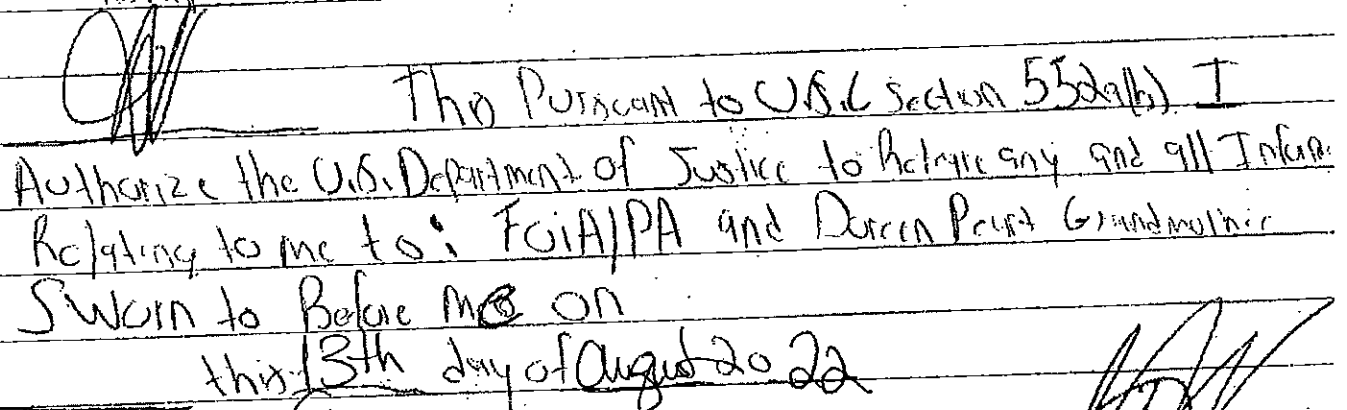 Pursuant to U.S.C Section 552a(b) I
Authorize the U.S. Department of Justice to Release any and all
Relating to me to: FOiA/PA and Grandmother
Sworn to Before me on
this 13th day of August 2022